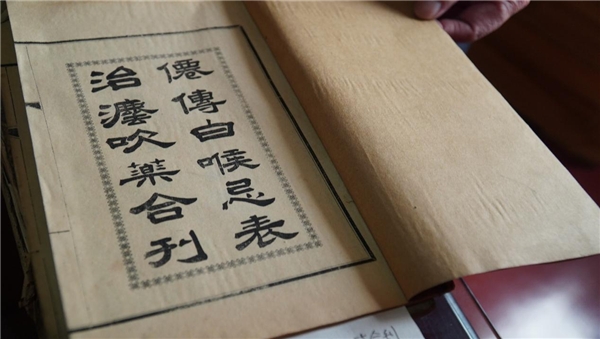 僊傳白喉忌表
治吹藥合刊